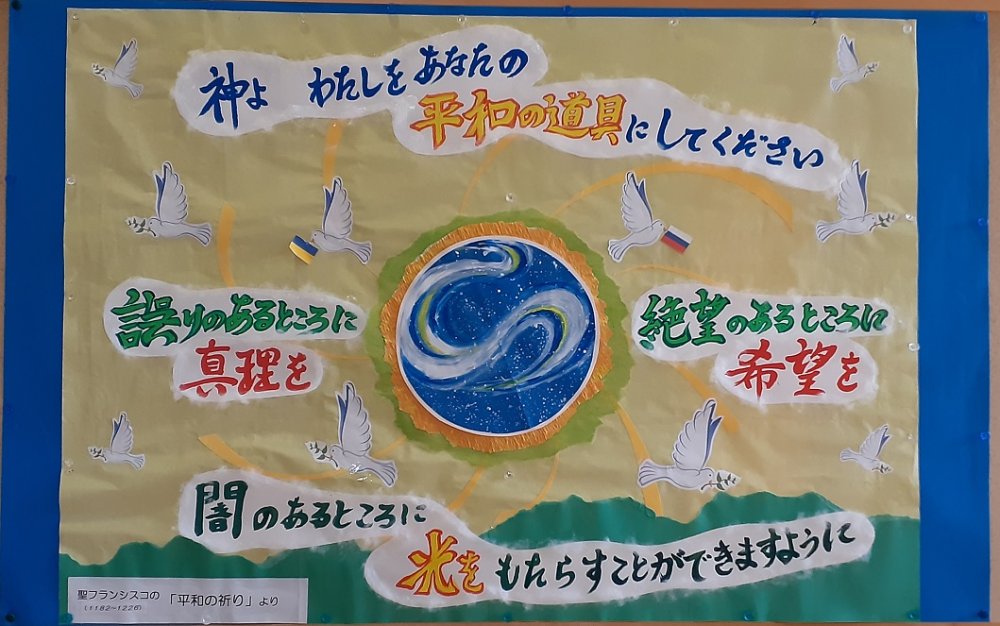 神よ わたしをあなたの
平和の道具にしてください
誤りのあるところに
真理を
絶望のあるところに
希望を
闇のあるところに
光をもたらすことができますように
聖フランシスコの「平和の祈り」より
(1182~1226)